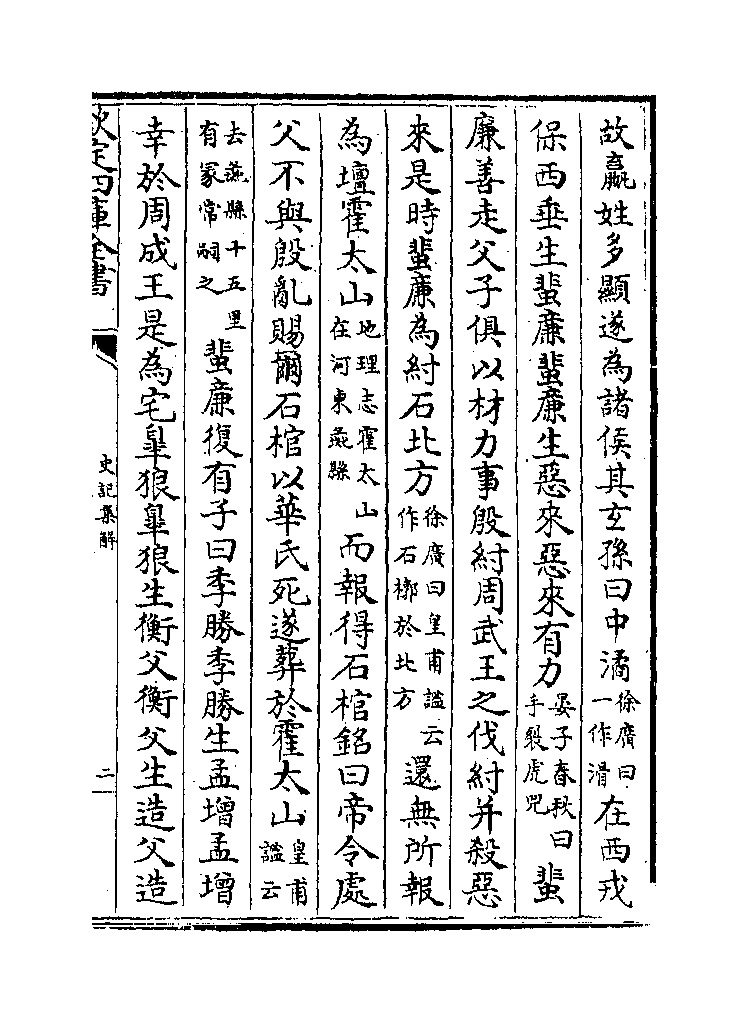 故嬴姓多顯遂為諸侯其玄孫曰中潏徐廣曰一作滑在西戎
保西垂生蜚廉蜚廉生惡來惡來有力晏子春秋曰手裂虎兕蜚
廉善走父子俱以材力事殷紂周武王之伐紂并殺惡
來是時蜚廉為紂石北方徐廣曰皇甫謐云作石槨於北方還無所報
為壇霍太山地理志霍太山在河東彘縣而報得石棺銘曰帝令處
父不與殷亂賜爾石棺以華氏死遂葬於霍太山皇甫謐云
去彘縣十五里有冢常嗣之蜚廉復有子曰季勝季勝生孟增孟增
幸於周成王是為宅臯狼臯狼生衡父衡父生造父造
欽定四庫全書
史記集解
二